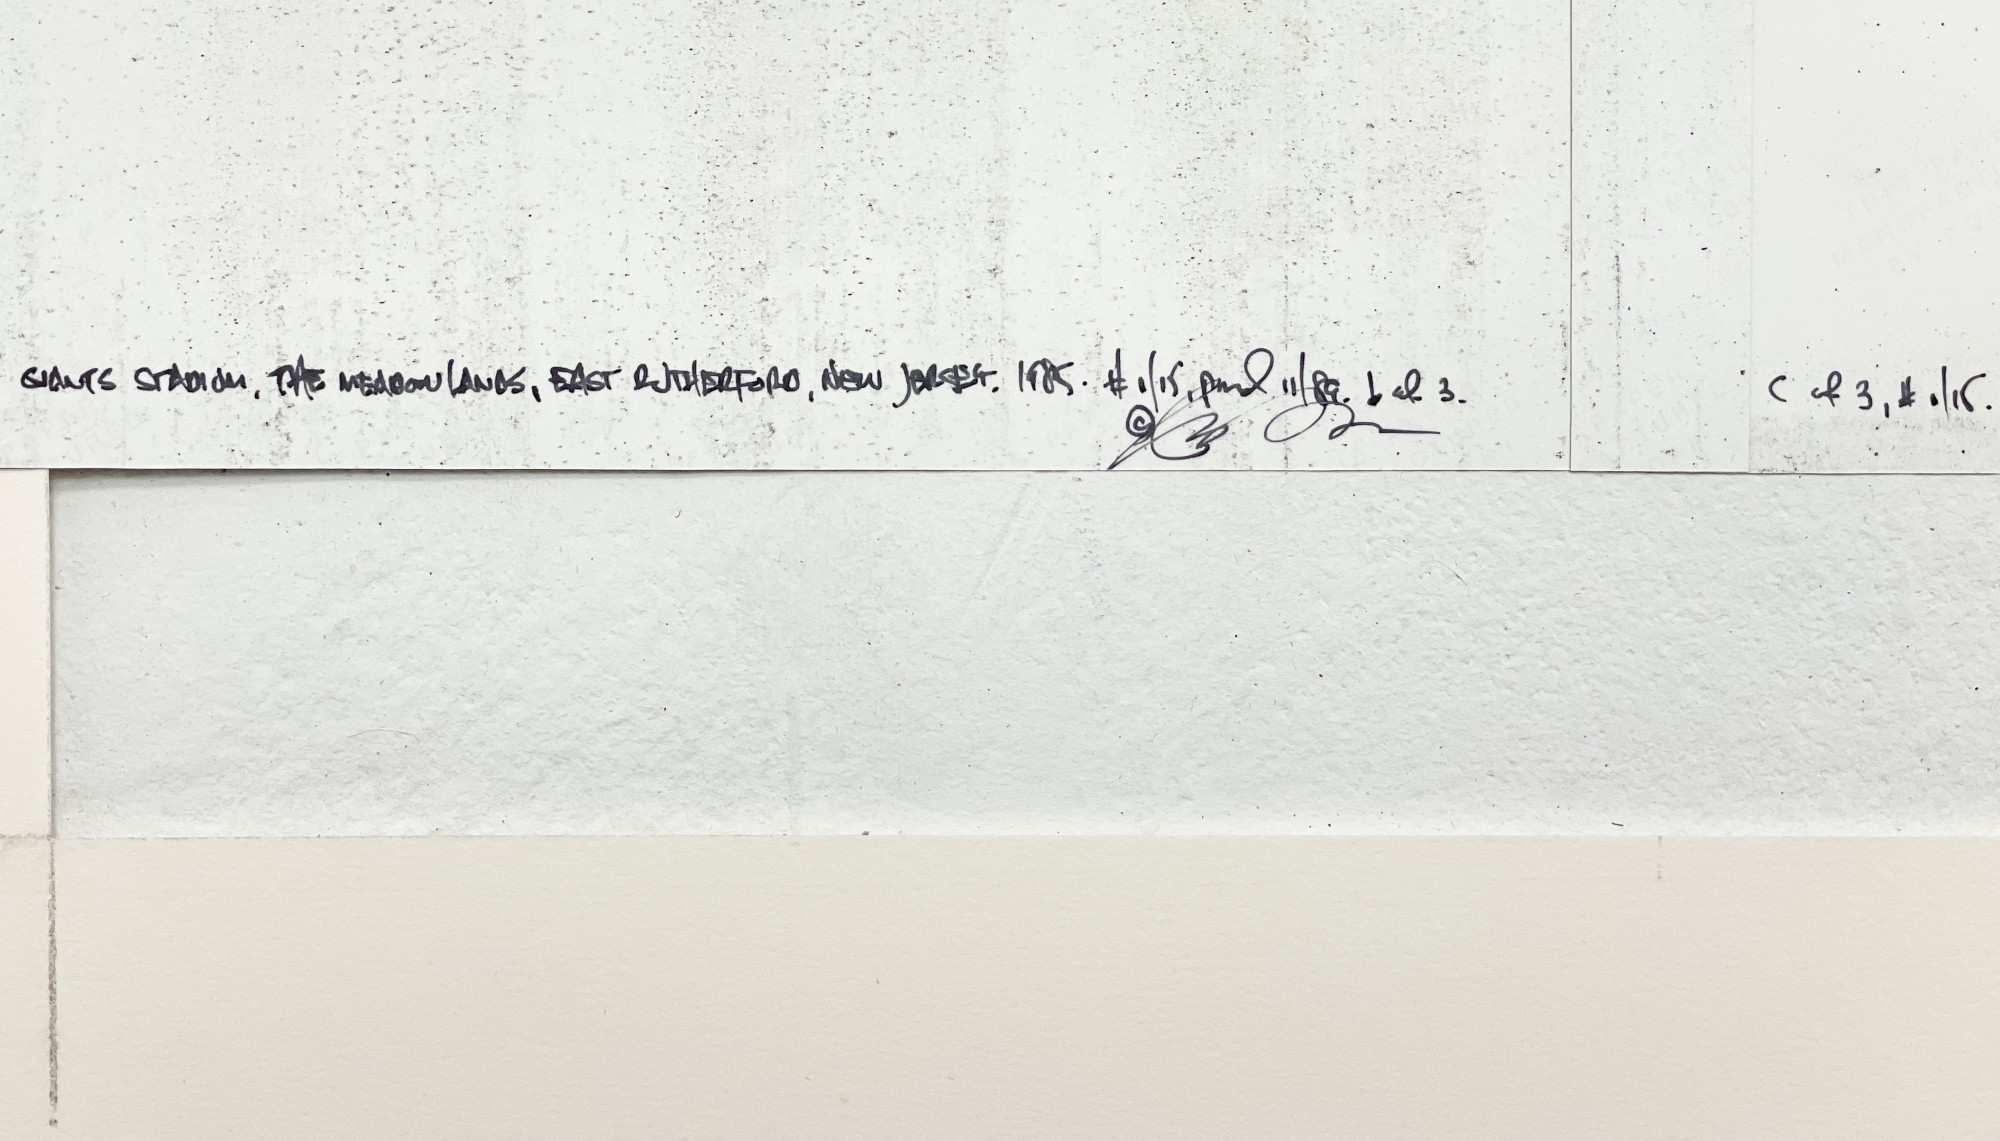 GIANTS STADIUM, THE MEADOWLANDS, EAST RUTHERFORD, NEW JERSEY. 1985. # 1/15, print 11/89. b of 3.
©
C of 3, # 1/15.